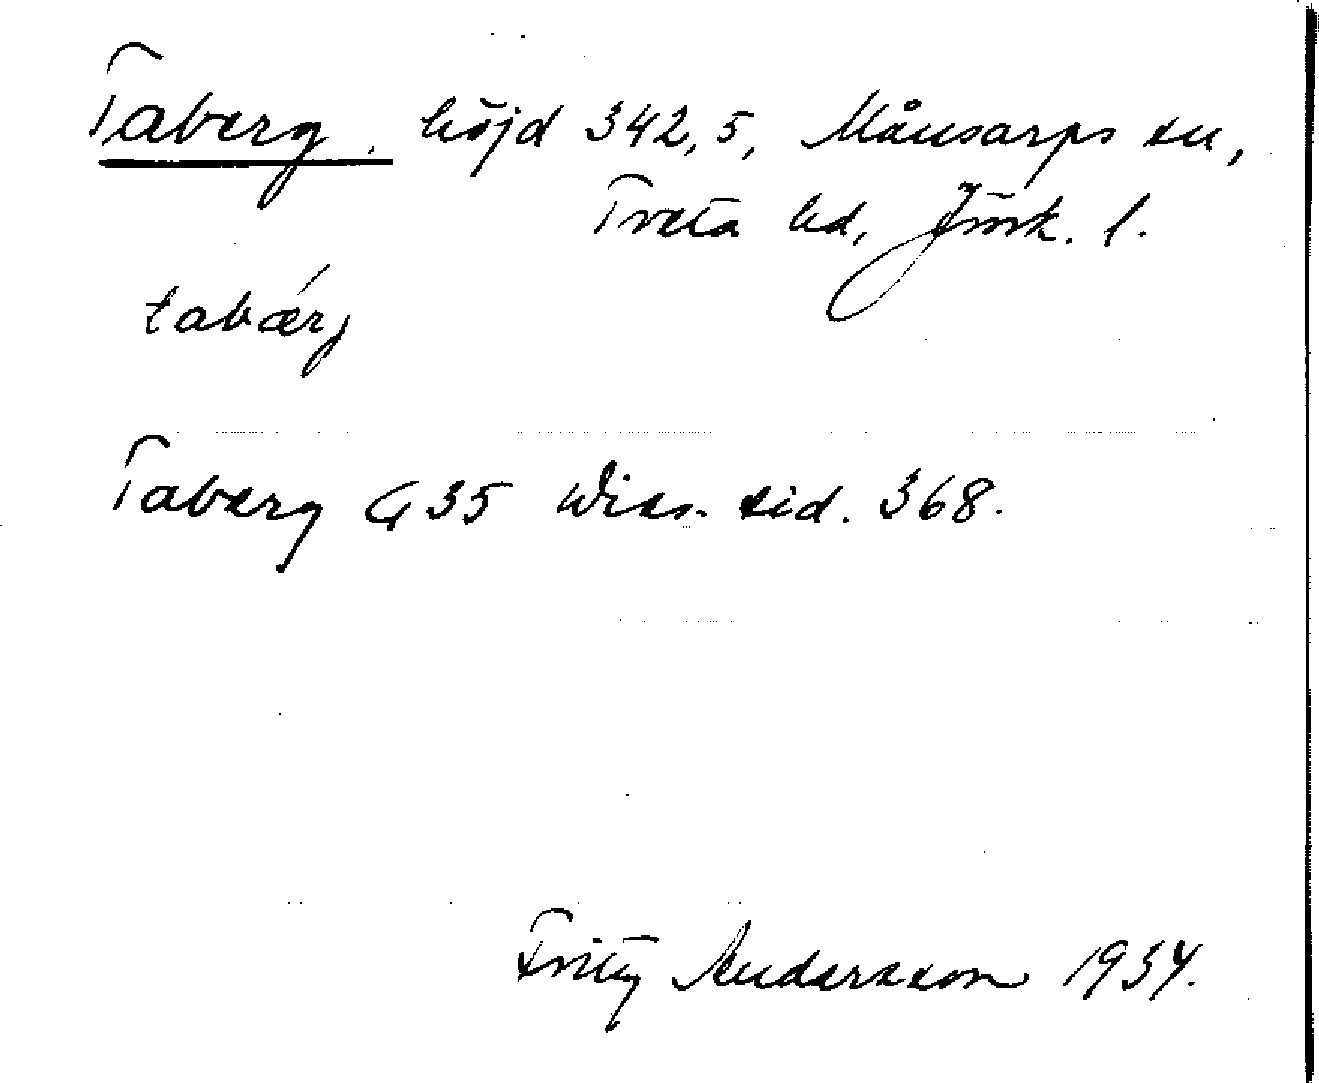 Taberg. höjd 342,5, Månsarps sn,
Tveta hd, Jönk. l.
tabǽrj
Taberg G 35 Wies. sid. 368.
Fritz Andersson 1934.